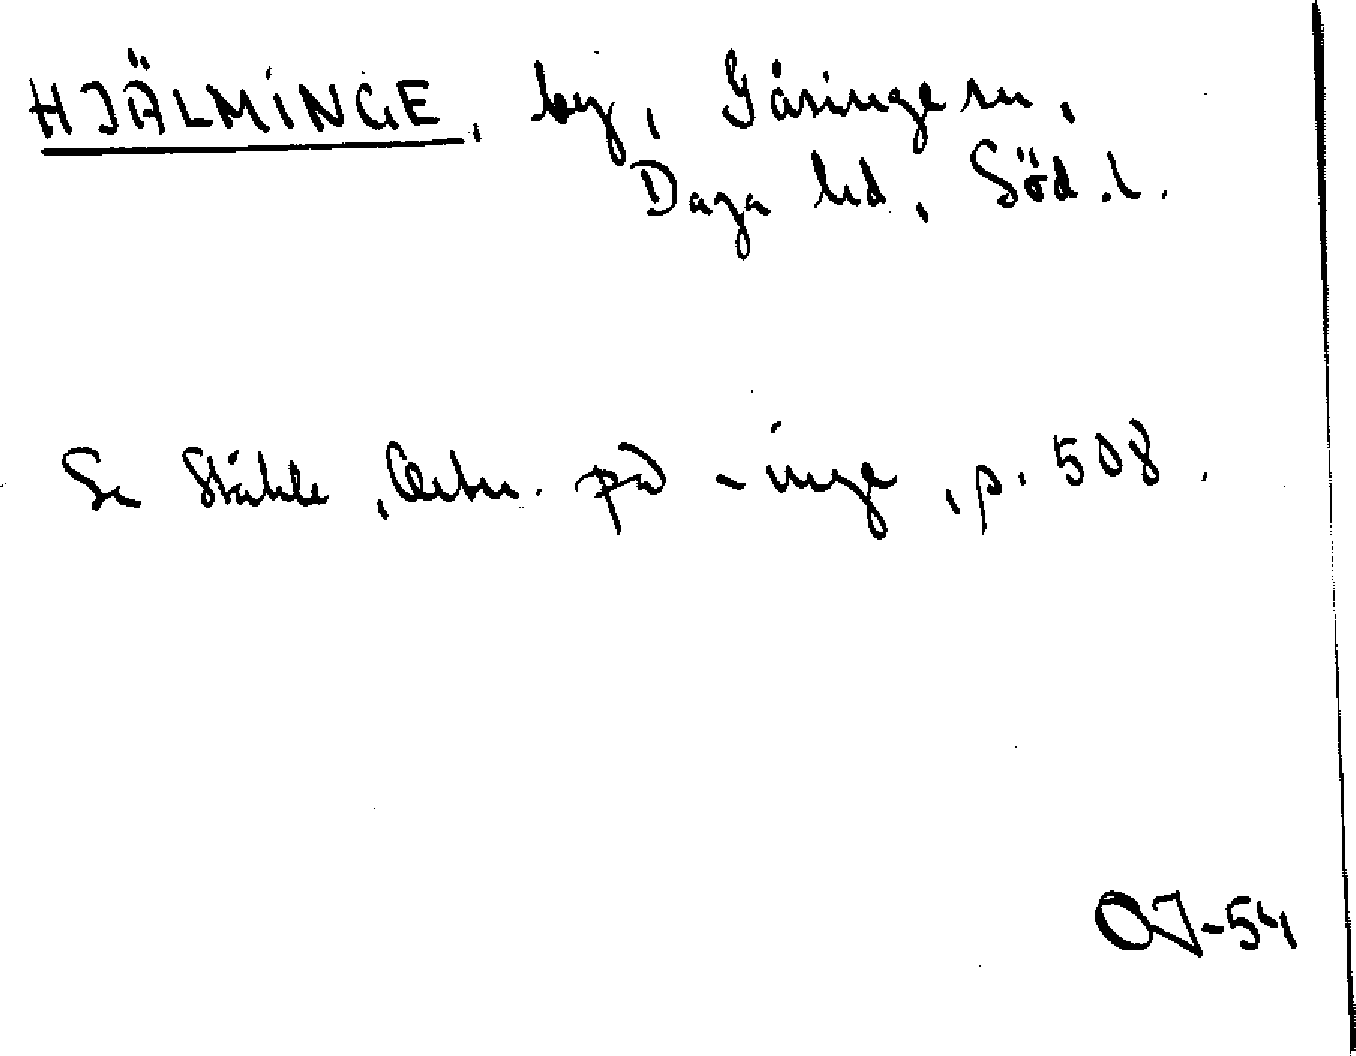 HJÄLMINGE, by, Gåsinge sn,
Daga hd, Söd.l.
Se Ståhle, Ortn. på -inge, p. 508.
OJ-54